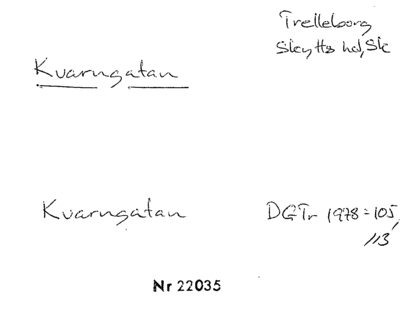 Trelleborg
Skytts hd, Sk
Kvarngatan
Kvarngatan
DGTr 1978:105,
113
Nr 22035